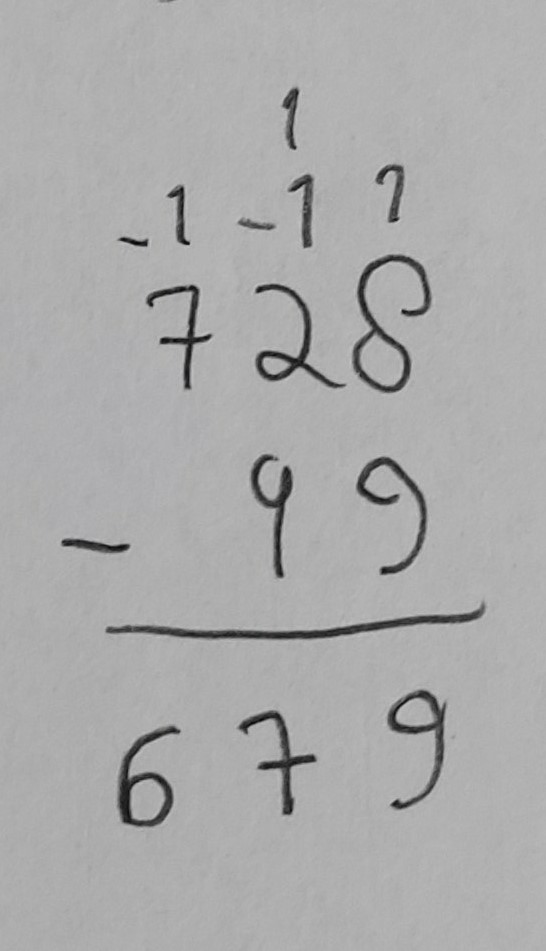 1
-1 -1 1
728
- 49
679